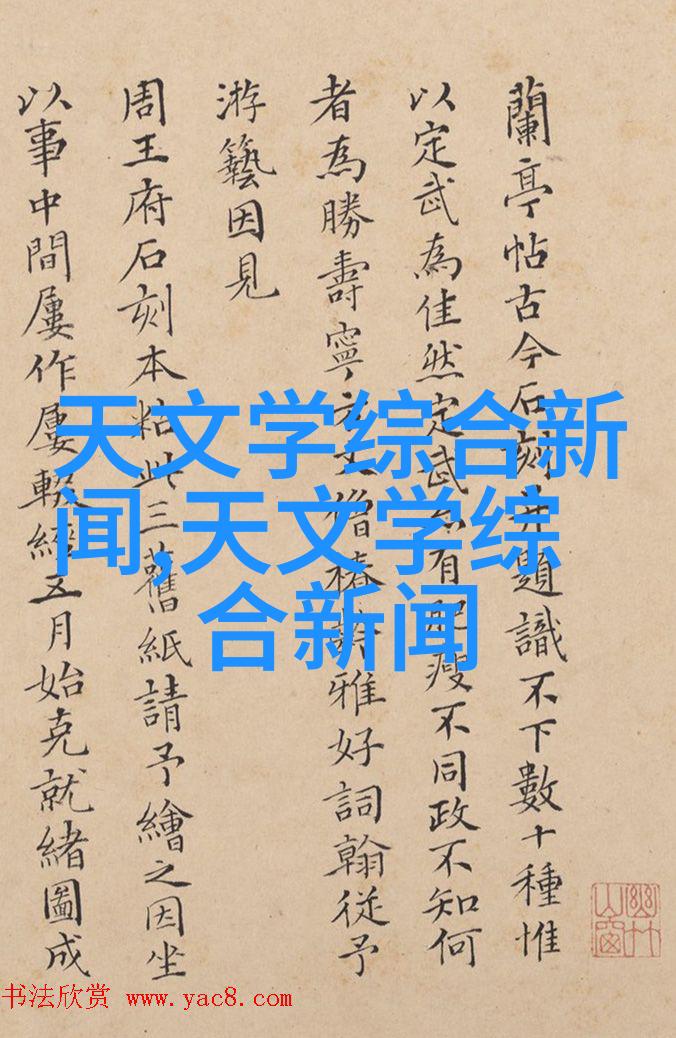 蘭亭帖古今石刻并題識不下數十種惟
以定武為佳然定武有肥瘦不同政不知何
者為勝壽寧雅好詞翰從予
游藝因見
周王府石刻本粘此三舊紙請予繪之因坐
以事中間屢作屢輟經五月始克就緒圖成
天文学综合新
闻,天文学综
合新闻
书法欣赏 www.yac8.com